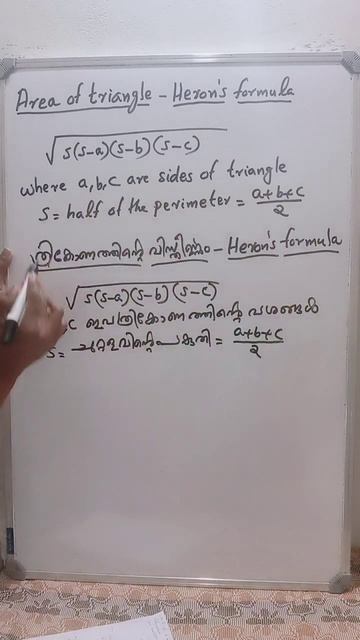 Area of triangle - Heron's formula
√s(s-a)(s-b)(s-c)
where a,b,c are sides of triangle
s = half of the perimeter = a+b+c/2
ത്രികോണത്തിന്റെ വിസ്തീർണ്ണം - Heron's formula
√s(s-a)(s-b)(s-c)
c ഇവ ത്രികോണത്തിന്റെ വശങ്ങൾ
s= ചുറ്റളവിന്റെ പകുതി = a+b+c/2